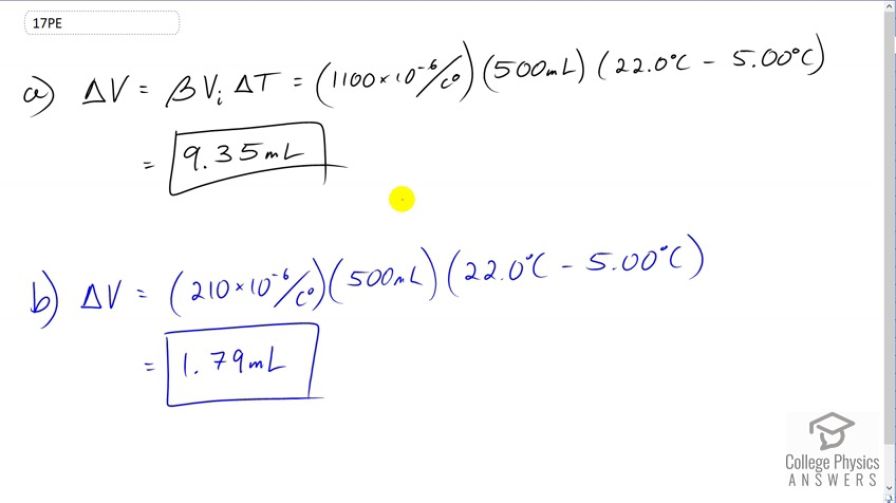 17PE
a) ΔV = βVᵢ ΔT = (1100×10⁻⁶/C°)(500mL)(22.0°C − 5.00°C)
= 9.35mL
b) ΔV = (210×10⁻⁶/C°)(500mL)(22.0°C − 5.00°C)
= 1.79mL
College Physics
ANSWERS